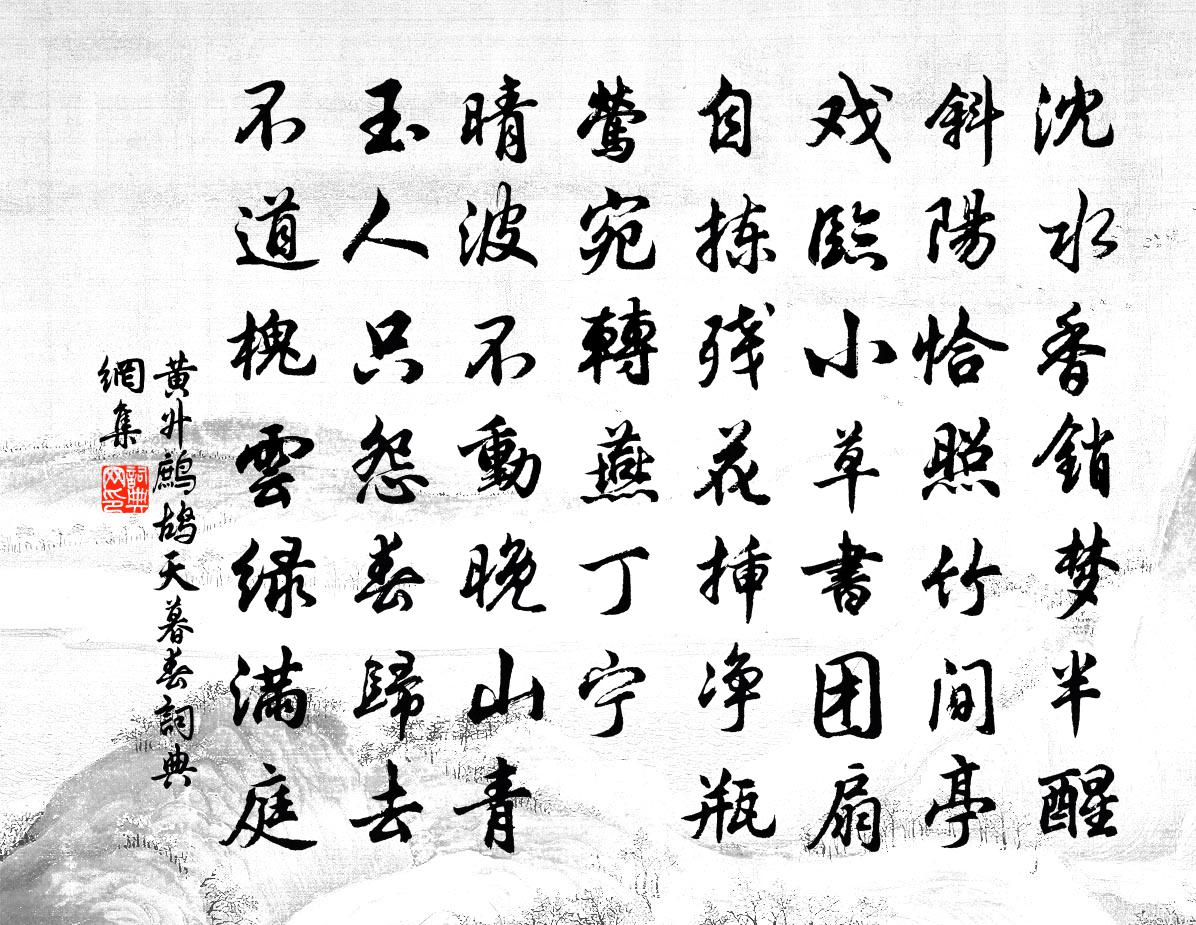 沈水香銷梦半醒
斜陽恰照竹间亭
戏臨小草書团扇
自拣残花插净瓶
莺宛轉燕丁宁
晴波不動晚山青
玉人只怨春歸去
不道槐雲绿满庭
黄升鷓鴣天暮春詞典
網集
詞典
网印